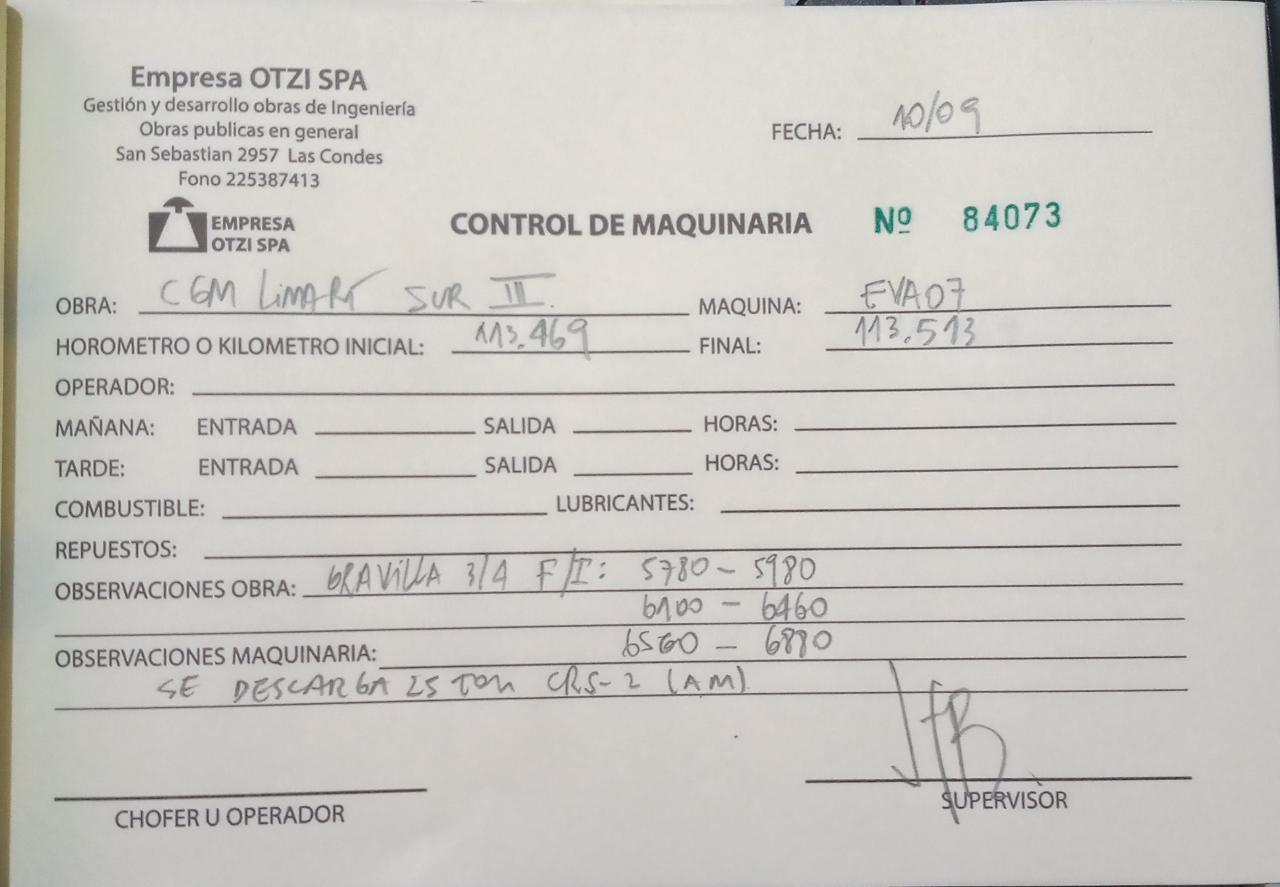 Empresa OTZI SPA
Gestión y desarrollo obras de Ingeniería
Obras publicas en general
San Sebastian 2957 Las Condes
Fono 225387413
FECHA: 10/09
EMPRESA
OTZI SPA
CONTROL DE MAQUINARIA Nº 84073
OBRA: CGM LIMARÍ SUR III. MAQUINA: EVA07
HOROMETRO O KILOMETRO INICIAL: 113.469 FINAL: 113.513
OPERADOR:
MAÑANA: ENTRADA SALIDA HORAS:
TARDE: ENTRADA SALIDA HORAS:
COMBUSTIBLE: LUBRICANTES:
REPUESTOS:
OBSERVACIONES OBRA: GRAVILLA 3/4 F/I: 5780 - 5980
6100 - 6460
6560 - 6880
OBSERVACIONES MAQUINARIA:
SE DESCARGA 25 TON CRS-2 (AM)
CHOFER U OPERADOR
SUPERVISOR